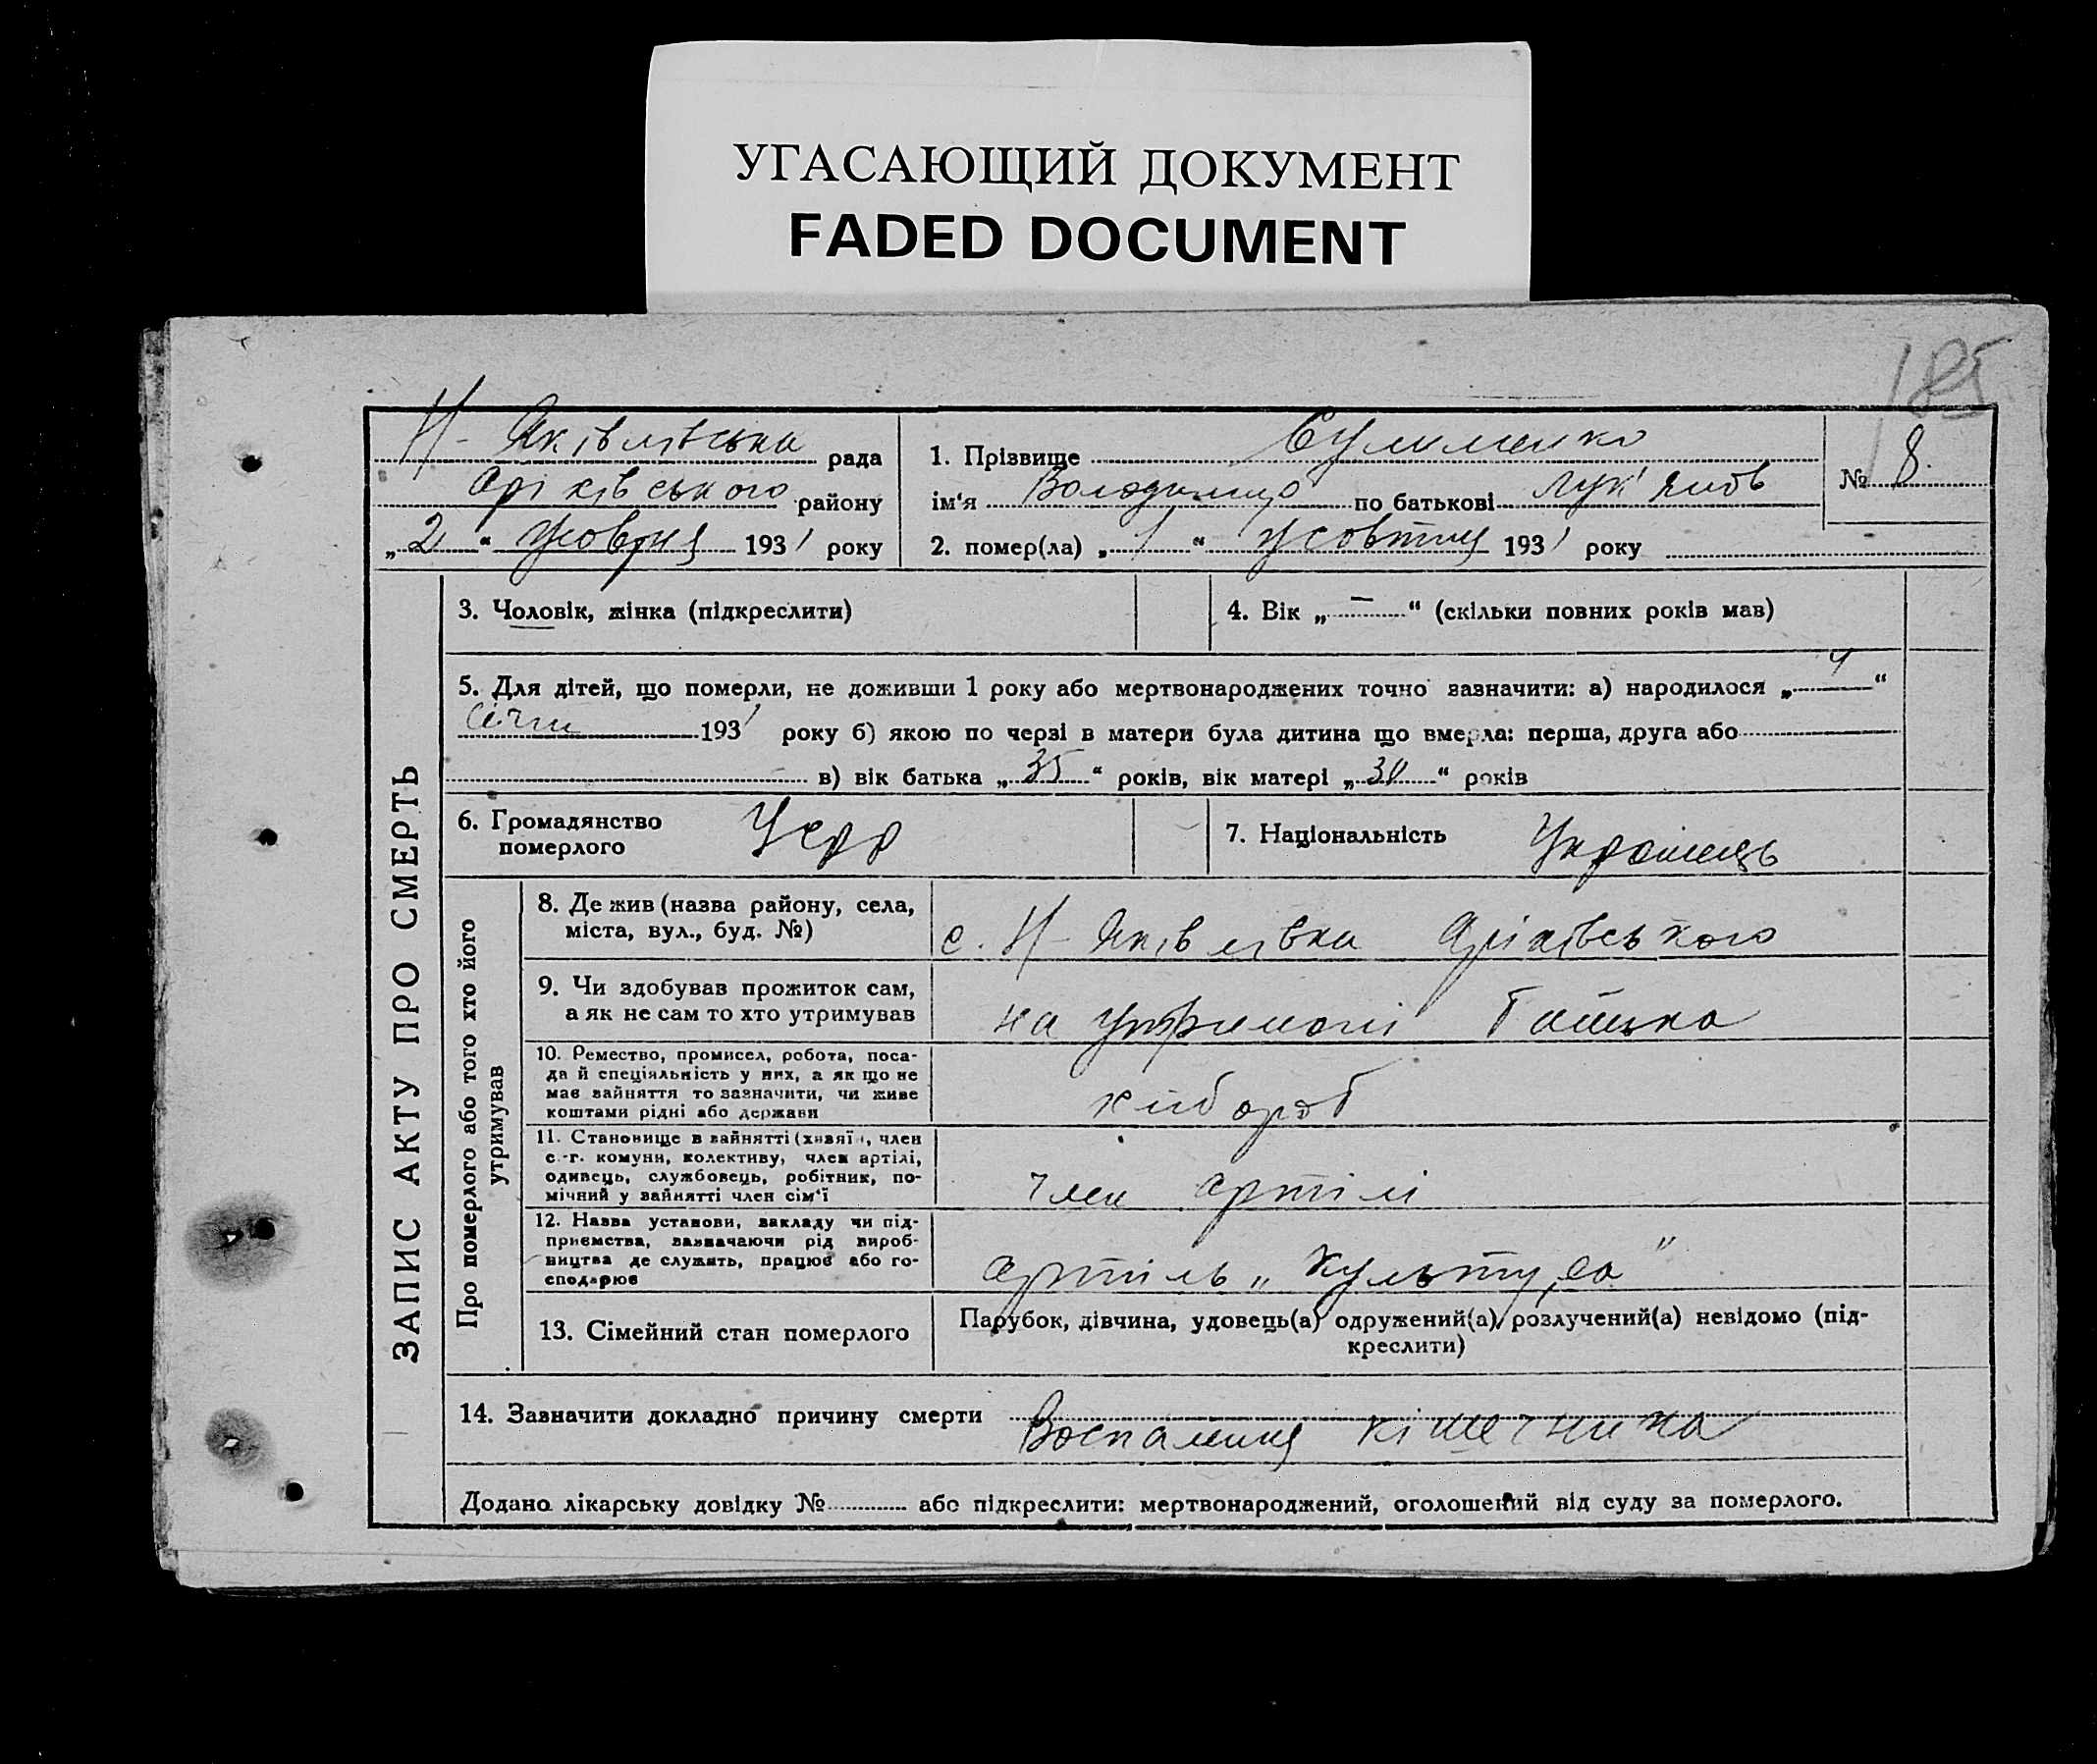 УГАСАЮЩИЙ ДОКУМЕНТ
FADED DOCUMENT
185
Н-Яківлівська рада
Оріхівського району
„2“ жовтня 1931 року
1. Прізвище
ім'я Володимир по батькові Лук'янов
2. помер(ла) „1“ жовтня 1931 року
№ 8.
ЗАПИС АКТУ ПРО СМЕРТЬ
3. Чоловік, жінка (підкреслити)
4. Вік „–“ (скільки повних років мав)
5. Для дітей, що померли, не доживши 1 року або мертвонароджених точно зазначити: а) народилося „4“
січня 1931 року б) якою по черзі в матери була дитина що вмерла: перша, друга або
в) вік батька „35“ років, вік матері „30“ років
6. Громадянство
померлого
УСРР
7. Національність Українець
Про померлого або того хто його
утримував
8. Де жив (назва району, села,
міста, вул., буд. №)
с. Н-Яківлівка Оріхівського
9. Чи здобував прожиток сам,
а як не сам то хто утримував
на утримані батька
10. Ремество, промисел, робота, поса-
да й спеціяльність у них, а як що не
має зайняття то зазначити, чи живе
коштами рідні або держави
хлібороб
11. Становище в зайнятті (хазяїн, член
с.-г. комуни, колективу, член артілі,
одинець, службовець, робітник, по-
мічний у зайнятті член сім'ї
член артілі
12. Назва установи, закладу чи під-
приємства, зазначаючи рід вироб-
ництва де служить, працює або го-
сподарює
артіль „Культура"
13. Сімейний стан померлого
Парубок, дівчина, удовець(а) одружений(а), розлучений(а) невідомо (під-
креслити)
14. Зазначити докладно причину смерти
Воспаления кішечника
Додано лікарську довідку № або підкреслити: мертвонароджений, оголошений від суду за померлого.